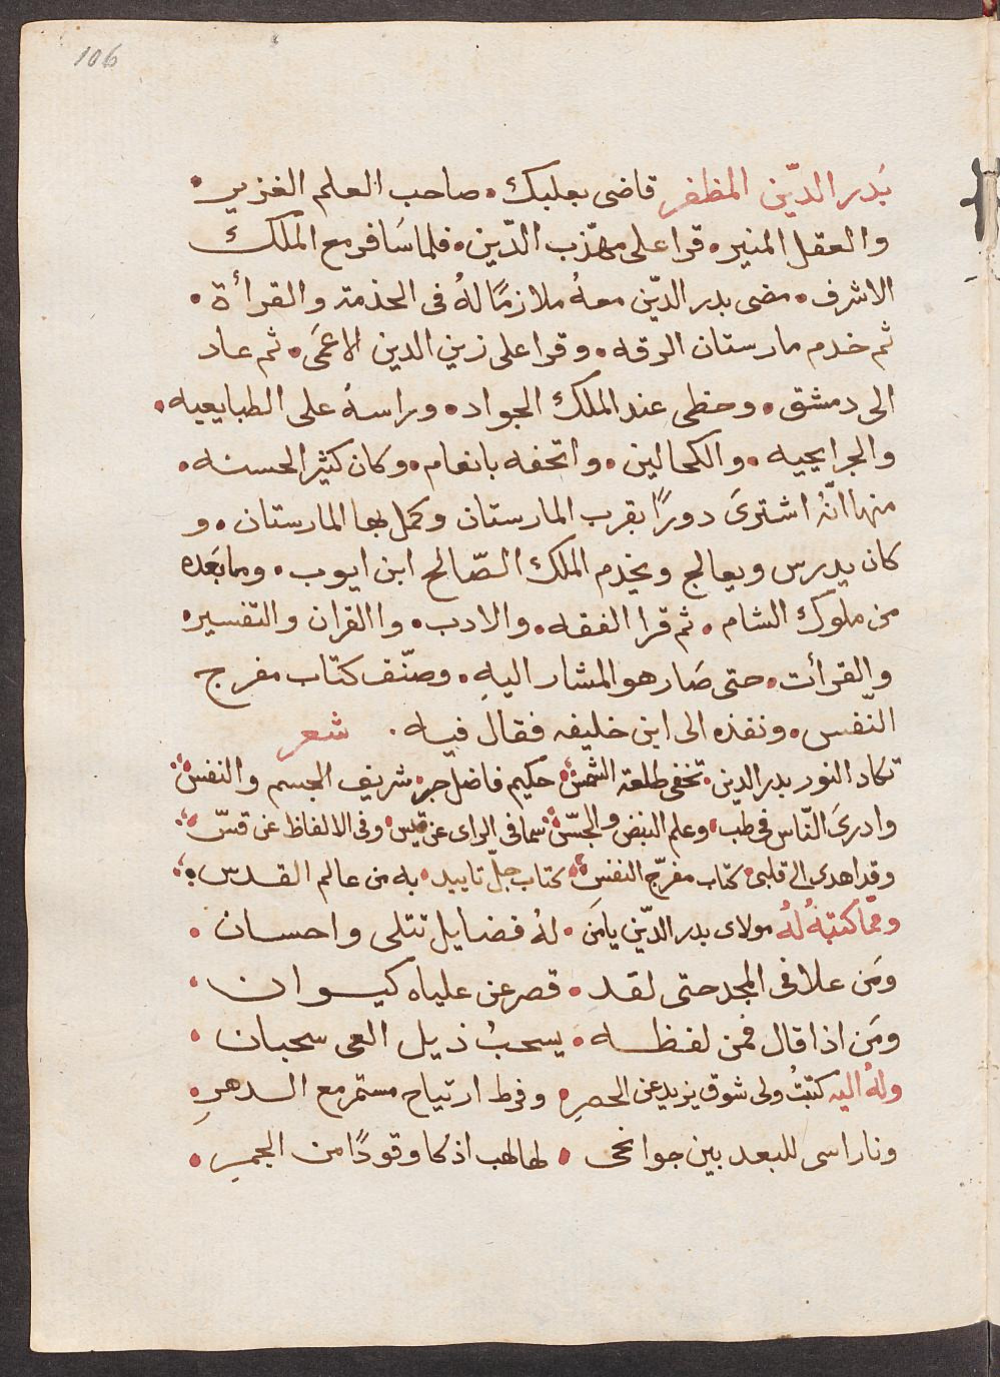 106
بَدر الدّين المظفر قاضى بعلبك • صاحب العلم الغزير •
والعقل المنير • قرا على مهذّب الدّين • فلما سَافر مع الملك
الاشرف • مضى بدر الدّين معهُ ملازمًا لهُ فى الخذمة والقرأة •
ثم خدم مارستان الرقه • وقرا على زين الدين الاعمَى • ثم عاد
الى دمشق • وحظى عند الملك الجواد • وراسهُ على الطبايعيه •
والجرايحيه • والكحالين • واتحفه بانعام • وكان كثير الحسنه •
منها انّهُ اشترىَ دورًا بقرب المارستان وكمل بها المارستان • و
كان يدرس ويعالج ويخذم الملك الصّالح ابن ايوب • وما بَعَده
من ملوك الشام • ثم قرا الفقه • والادب • واالقران والتفسير •
والقرأت • حتى صَار هو المشار اليهِ • وصنّف كتاب مفرج
النّفس • ونفذه الى ابن خليفه فقال فيه • شعر
تكاد النور بدر الدين • تخفى طلعة الشمس • حكيم فاضل حبر • شريف الجسم والنفس
وادرىَ النّاس فى طب • وعلم النبض والجسّ • سما فى الراى عن قيس • وفى الالفاظ عن قسّ
وقد اهدى الى قلبى • كتاب مفرّج النفس • كتاب جلّ تاييد • به من عالم القدس
ومّما كتبهُ لهُ مولاى بدر الدّين يا مَن • لهُ فضايل تتلى واحسان •
ومَن علا فى المجد حتى لقد • قصر عن علياه كيوان •
ومَن اذا قال فمن لفظه • يسحبُ ذيل العى سحبان •
ولهُ اليه كتبتُ ولى شوق يزيد عن الحصرِ • وفرط ارتياح مستمر مع الدهرِ •
ونار اسى للبعد بين جوانحى • لها لهب اذكا وقودًا من الجمرِ •